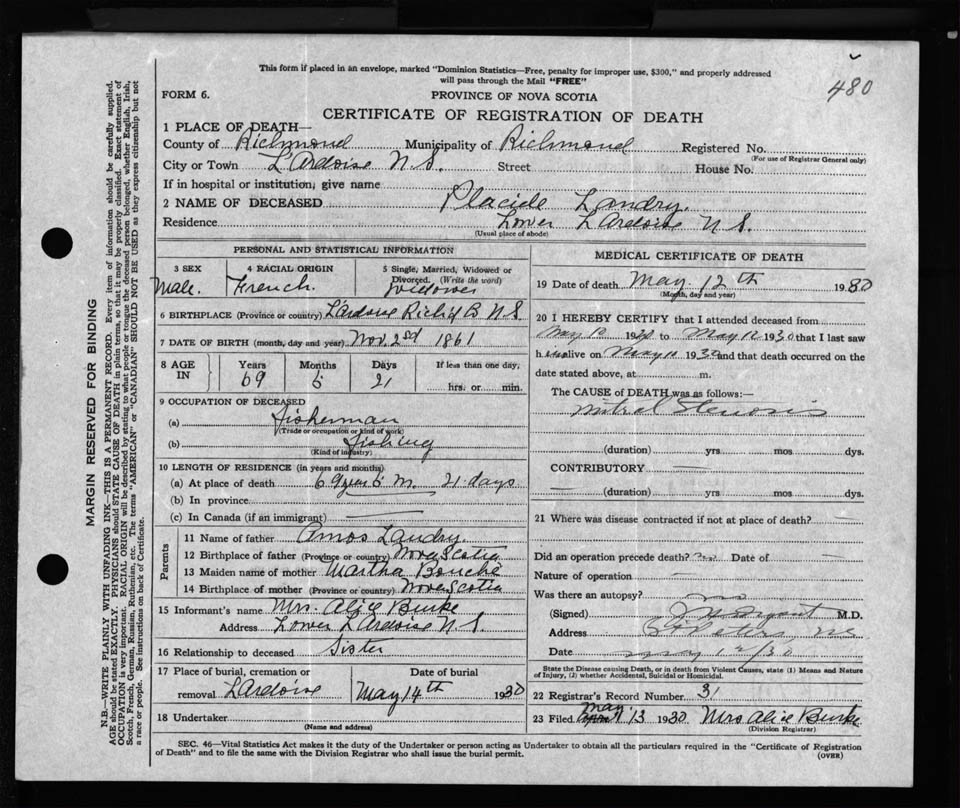 480
This form if placed in an envelope, marked "Dominion Statistics—Free, penalty for improper use, $300," and properly addressed
will pass through the Mail "FREE"
FORM 6.
PROVINCE OF NOVA SCOTIA
CERTIFICATE OF REGISTRATION OF DEATH
1 PLACE OF DEATH—
County of Richmond Municipality of Richmond Registered No.
(For use of Registrar General only)
City or Town L'Ardoise N.S. Street House No.
If in hospital or institution, give name
2 NAME OF DECEASED Placide Landry.
Residence Lower L'Ardoise N.S.
(Usual place of abode)
PERSONAL AND STATISTICAL INFORMATION
3 SEX
Male.
4 RACIAL ORIGIN
French.
5 Single, Married, Widowed or
Divorced. (Write the word)
Widower
6 BIRTHPLACE (Province or country) L'Ardoise N.S.
7 DATE OF BIRTH (month, day and year) Nov. 2nd 1861
8 AGE
IN
Years
69
Months
6
Days
21
If less than one day,
hrs. or min.
9 OCCUPATION OF DECEASED
(a) fisherman
(Trade or occupation or kind of work)
(b) fishing
(Kind of industry)
10 LENGTH OF RESIDENCE (in years and months)
(a) At place of death 69 years 6 m. 21 days
(b) In province
(c) In Canada (if an immigrant)
Parents
11 Name of father Amos Landry.
12 Birthplace of father (Province or country) Nova Scotia
13 Maiden name of mother Martha Bouché
14 Birthplace of mother (Province or country) Nova Scotia
15 Informant's name Mrs. Alice Burke
Address Lower L'Ardoise N.S.
16 Relationship to deceased Sister
17 Place of burial, cremation or
removal L'Ardoise
Date of burial
May 14th 1930
18 Undertaker
(Name and address)
MEDICAL CERTIFICATE OF DEATH
19 Date of death May 12th 1930
(Month, day and year)
20 I HEREBY CERTIFY that I attended deceased from
May 1930 to May 12 1930 that I last saw
him alive on May 11 1930 and that death occurred on the
date stated above, at m.
The CAUSE OF DEATH was as follows:—
Mitral Stenosis
(duration) yrs mos dys.
CONTRIBUTORY —
(duration) yrs mos dys.
21 Where was disease contracted if not at place of death? —
Did an operation precede death? no Date of —
Nature of operation —
Was there an autopsy? no
(Signed) M.D.
Address St Peters NS
Date May 12/30
State the Disease causing Death, or in death from Violent Causes, state (1) Means and Nature
of Injury, (2) whether Accidental, Suicidal or Homicidal.
22 Registrar's Record Number 31
23 Filed May 13 1930 Mrs Alice Burke
(Division Registrar)
SEC. 46—Vital Statistics Act makes it the duty of the Undertaker or person acting as Undertaker to obtain all the particulars required in the "Certificate of Registration
of Death" and to file the same with the Division Registrar who shall issue the burial permit.
(OVER)
MARGIN RESERVED FOR BINDING
N.B.—WRITE PLAINLY WITH UNFADING INK—THIS IS A PERMANENT RECORD. Every item of information should be carefully supplied.
AGE should be stated EXACTLY. PHYSICIANS should STATE CAUSE OF DEATH in plain terms, so that it may be properly classified. Exact statement of
OCCUPATION is very important. RACIAL ORIGIN will be described by stating to what people or tongue the deceased person belonged, whether English, Irish,
Scotch, French, German, Russian, Ruthenian, etc. The terms "AMERICAN" or "CANADIAN" SHOULD NOT BE USED as they express citizenship but not
a race or people. See instructions on back of Certificate.